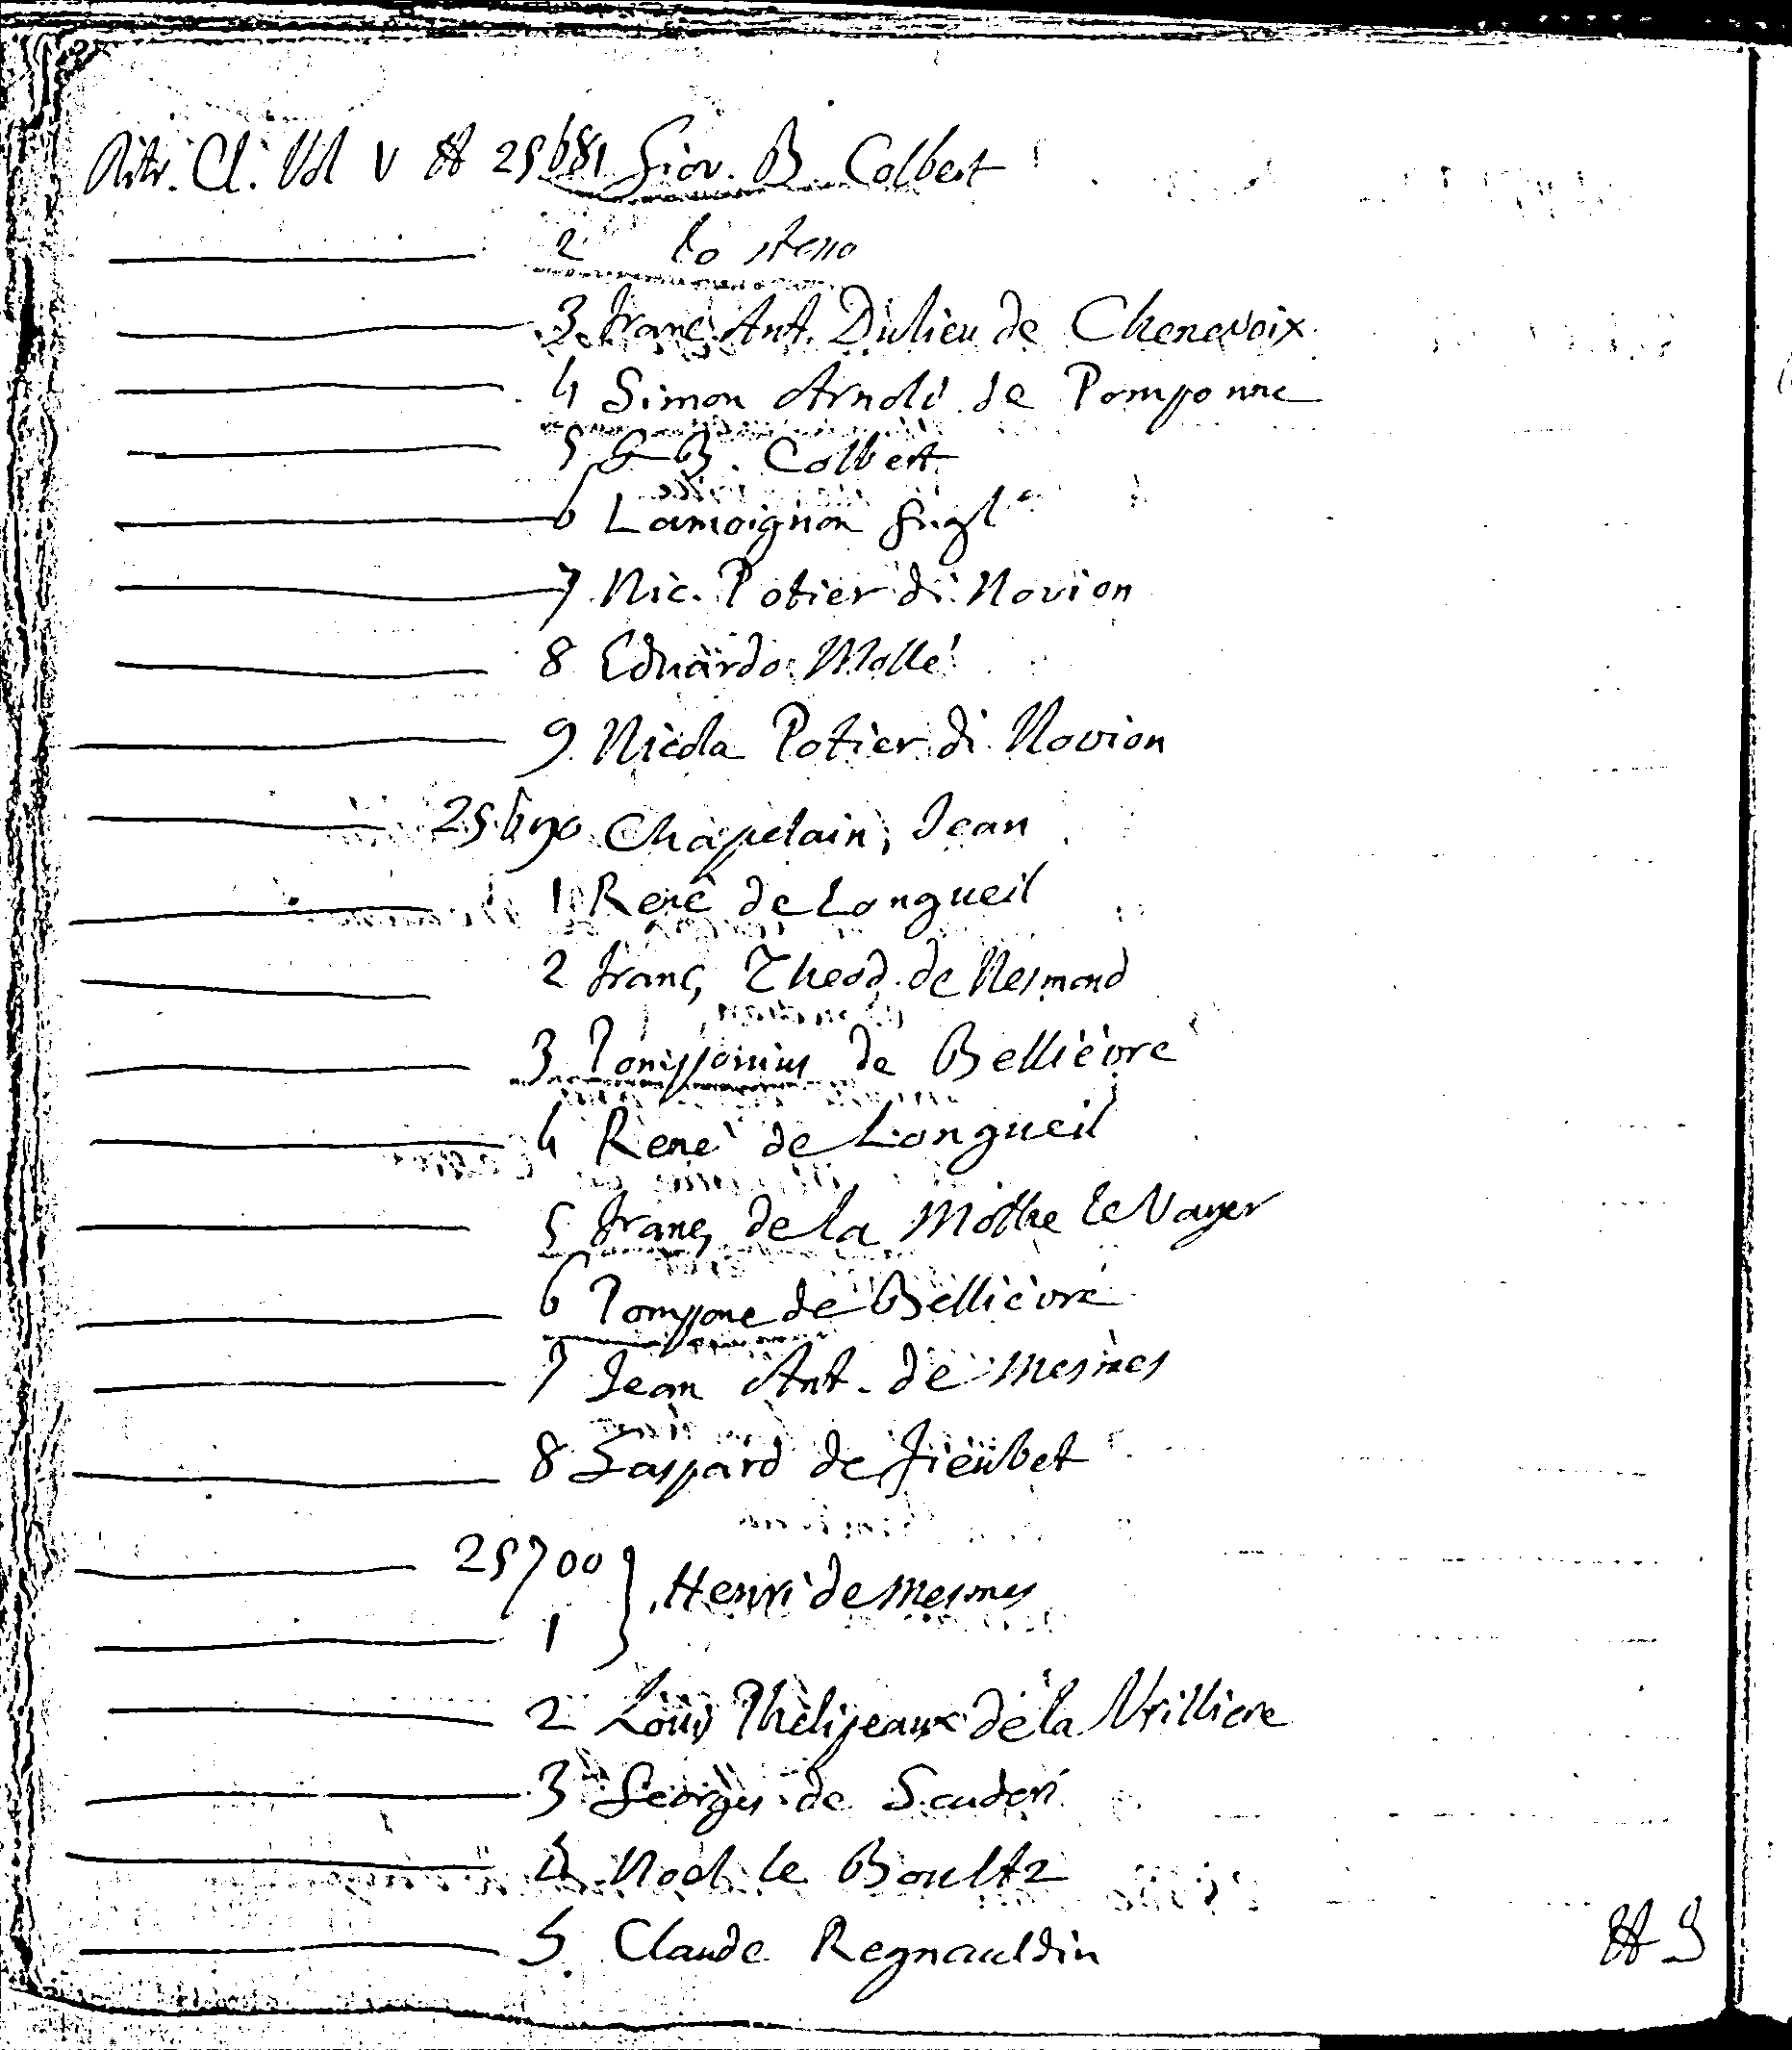 Ritr. Cl. Vol V H 25681 Giov. B. Colbert
2 lo stesso
3 Franc. Ant. Dulieu de Chenevoix
4 Simon Arnold de Pomponne
5 G B. Colbert
6 Lamoignon Gugl
7 Nic. Potier di Novion
8 Eduardo Mollé
9 Nicola Potier di Novion
25690 Chapelain, Jean
1 René de Longueil
2 Franç Theod. de Nesmond
3 Pomponius de Bellièvre
4 René de Longueil
5 Franç de la Mothe le Vayer
6 Pompone de Bellièvre
7 Jean Ant. de Mesmes
8 Gaspard de Fieubet
25700
1 } Henri de Mesmes
2 Louis Phelipeaux de la Vrilliere
3 Georges de Scuderi
4 Noel le Boultz
5. Claude Regnauldin
H 9